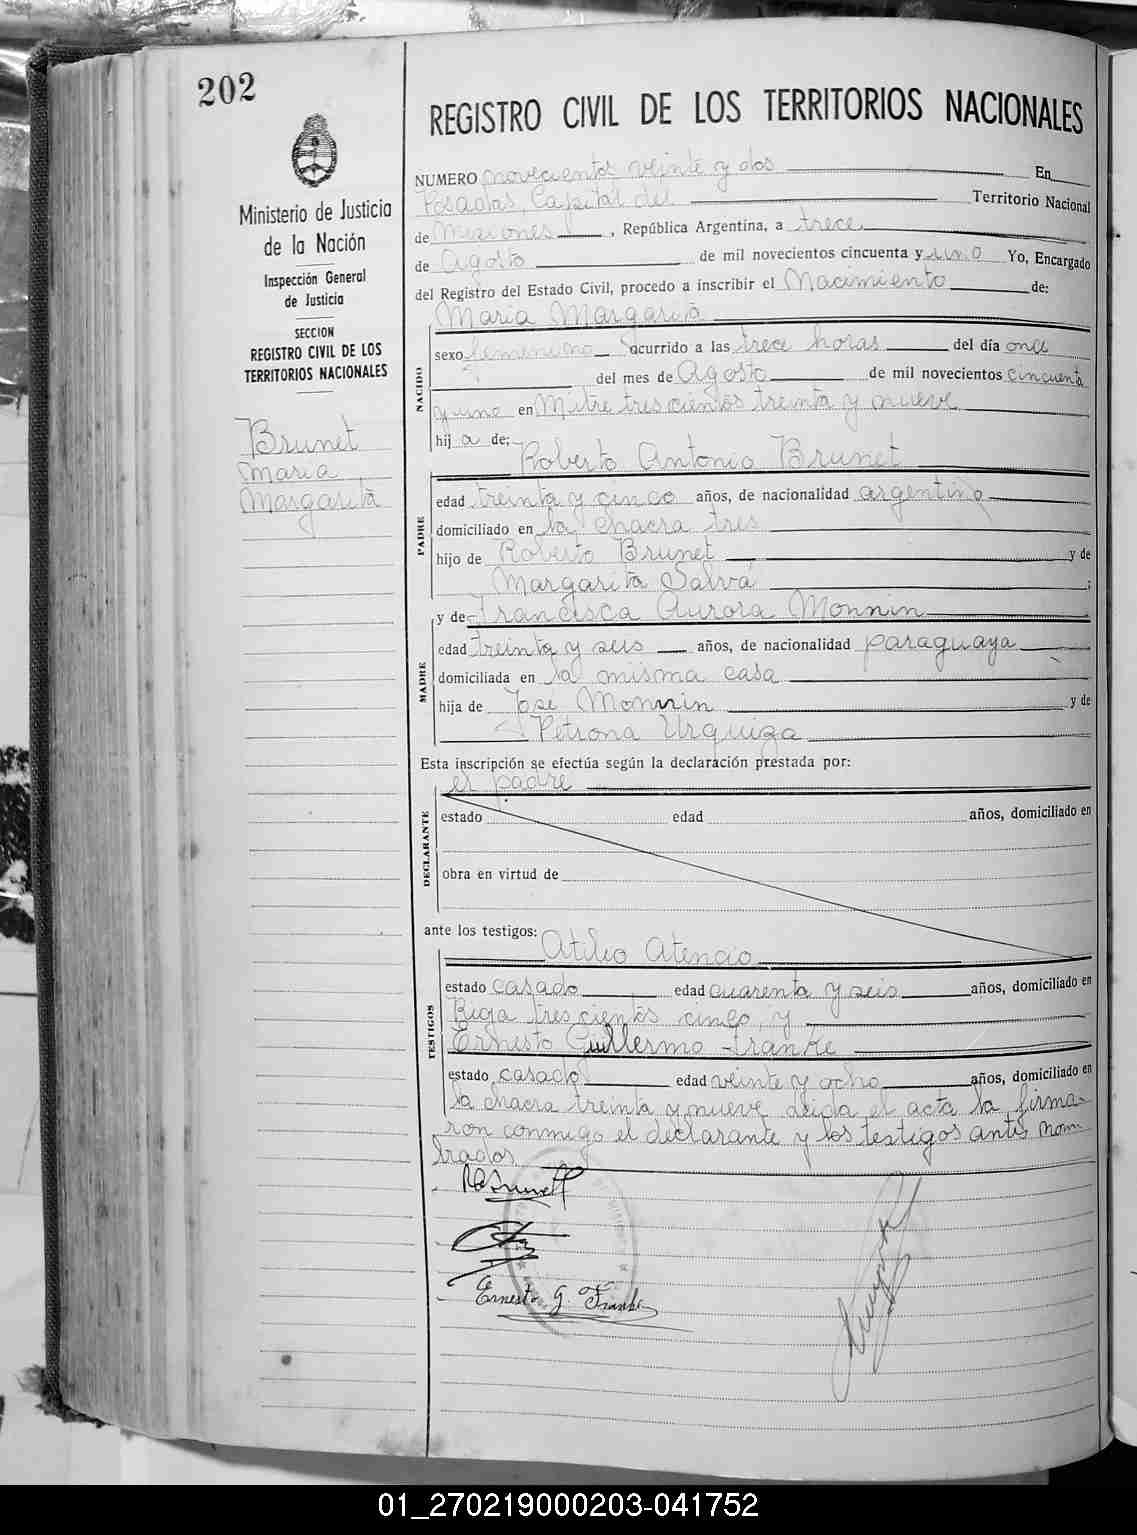 202
REGISTRO CIVIL DE LOS TERRITORIOS NACIONALES
Ministerio de Justicia
de la Nación
Inspección General
de Justicia
SECCION
REGISTRO CIVIL DE LOS
TERRITORIOS NACIONALES
Brunet
Maria
Margarita
NUMERO novecientos veinte y dos En
Posadas, Capital del Territorio Nacional
de Misiones, República Argentina, a trece
de Agosto de mil novecientos cincuenta y uno Yo, Encargado
del Registro del Estado Civil, procedo a inscribir el Nacimiento de:
NACIDO
Maria Margarita
sexo femenino ocurrido a las trece horas del día once
del mes de Agosto de mil novecientos cincuenta
y uno en Mitre trescientos treinta y nueve
hija de:
PADRE
Roberto Antonio Brunet
edad treinta y cinco años, de nacionalidad argentino
domiciliado en la chacra tres
hijo de Roberto Brunet y de
Margarita Salvá;
MADRE
y de Francisca Aurora Monnin
edad treinta y seis años, de nacionalidad paraguaya
domiciliada en la misma casa
hija de Jose Monnin y de
Petrona Urquiza
Esta inscripción se efectúa según la declaración prestada por:
el padre
DECLARANTE
estado edad años, domiciliado en
obra en virtud de
ante los testigos:
TESTIGOS
Atilio Atencio
estado casado edad cuarenta y seis años, domiciliado en
Rioja trescientos cinco, y
Ernesto Guillermo Franke
estado casado edad veinte y ocho años, domiciliado en
la chacra treinta y nueve leida el acta la firma-
ron conmigo el declarante y los testigos antes nom-
brados.
Ernesto G. Franke
01_270219000203-041752